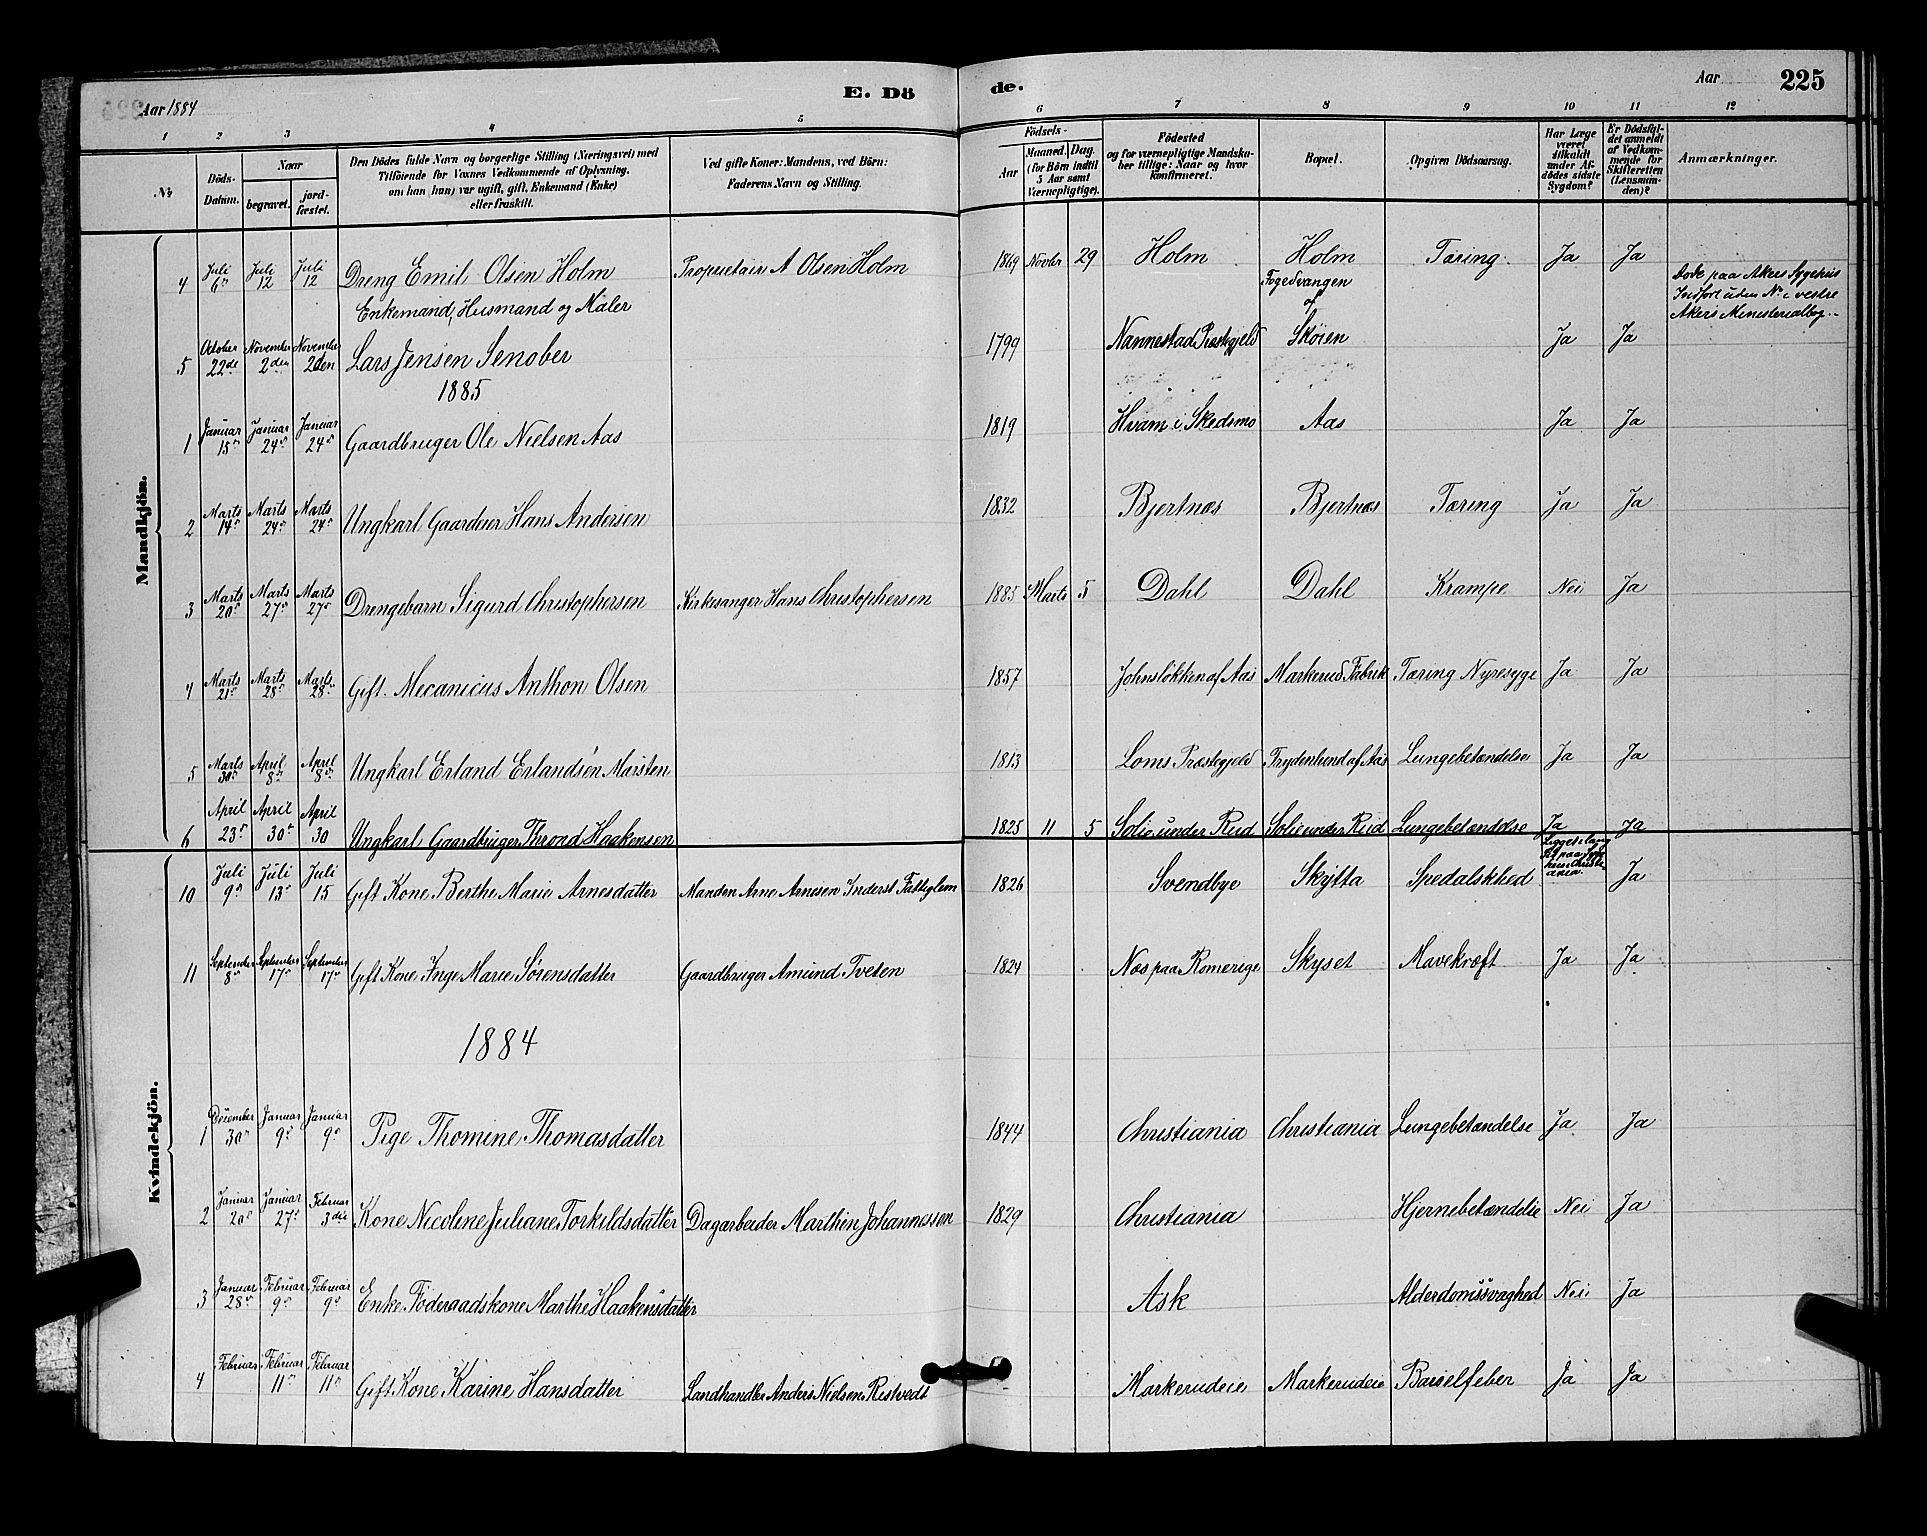 Aar 1884 E. Dö de. Aar 225
1 2 3 4 5 6 7 8 9 10 11 12
No.
Döds-Datum.
Naar
begravet.
jord-fæstet.
Den Dödes fulde Navn og borgerlige Stilling (Næringsvei) med
Tilföiende for Voxnes Vedkommende af Oplysning,
om han (hun) var ugift, gift, Enkemand (Enke)
eller fraskilt.
Ved gifte Koner: Mandens, ved Börn:
Faderens Navn og Stilling.
Födsels-
Aar
Maaned. Dag.
(for Börn indtil
5 Aar samt
Værnepligtige).
Födested
og for værnepligtige Mandska-
ber tillige: Naar og hvor
konfirmeret.
Bopæl.
Opgiven Dödsaarsag.
Har Læge
været
tilkaldt
under Af-
dödes sidste
Sygdom?
Er Dödsfal-
det anmeldt
af Vedkom-
mende for
Skifteretten
(Lensman-
den)?
Anmærkninger.
Mandkjön.
4 Juli 6te Juli 12 Juli 12 Dreng Emil Olsen Holm Proprietair A Olsen Holm 1869 Novbr 29 Holm Holm Tæring Ja Ja
döde paa Akers Sygehus
Indfört uden No i vestre
Akers Ministerialbog.
Enkemand, Husmand og Maler Fogedvangen
af
5 October 22de November 2den November 2den Lars Jensen Senober 1799 Nannestad Præstegjeld Skøien Ja Ja
1885
1 Januar 15de Januar 24de Januar 24de Gaardbruger Ole Nielsen Aas 1819 Hvam i Skedsmo Aas Ja Ja
2 Marts 14de Marts 24de Marts 24de Ungkarl Gaardeier Hans Andersen 1832 Bjertnæs Bjertnæs Tæring Ja Ja
3 Marts 20de Marts 27de Marts 27de Drengebarn Sigurd Christophersen Kirkesanger Hans Christophersen 1885 Marts 5 Dahl Dahl Krampe Nei Ja
4 Marts 21de Marts 28de Marts 28de Gift. Mecanicus Anthon Olsen 1857 Johnsløkken af Aas Markerud Fabrik Tæring Nyresyge Ja Ja
5 Marts 30de April 8de April 8de Ungkarl Erland Erlandsen Marsten 1813 Loms Præstegjeld Frydenlund af Aas Lungebetændelse Ja Ja
6 April 23de April 30te April 30 Ungkarl Gaardbruger Thrond Haakensen 1825 11 5 Solie under Rud Solie under Rud Lungebetændelse Ja Ja
Kvindekjön.
10 Juli 9de Juli 13de Juli 15 Gift Kone Berthe Marie Arnesdatter Manden Arne Arnesen Inderst Fattiglem 1826 Svendbye Skytta Spedalskhed
Ligget i lang
Tid paa Syge
huse Christi
ania.
Ja
11 September 8de September 17de September 17de Gift Kone Inge Marie Sørensdatter Gaardbruger Amund Tveten 1824 Næs paa Romerige Skyset Mavekræft Ja Ja
1884
1 December 30te Januar 9de Januar 9de Pige Thomine Thomasdatter 1844 Christiania Christiania Lungebetændelse Ja Ja
2 Januar 20de Januar 27de Februar 3die Kone Nicoline Juliane Torkildsdatter Dagarbeider Marthin Johannessen 1829 Christiania Hjernebetændelse Nei Ja
3 Januar 28de Februar 9de Februar 9de Enke Föderaadskone Marthe Haakensdatter Ask Alderdomssvaghed Nei Ja
4 Februar Februar 11te Februar 11te Gift Kone Karine Hansdatter Landhandler Anders Nielsen Ristvedt Markerudeie Markerudeie Barselfeber Ja Ja